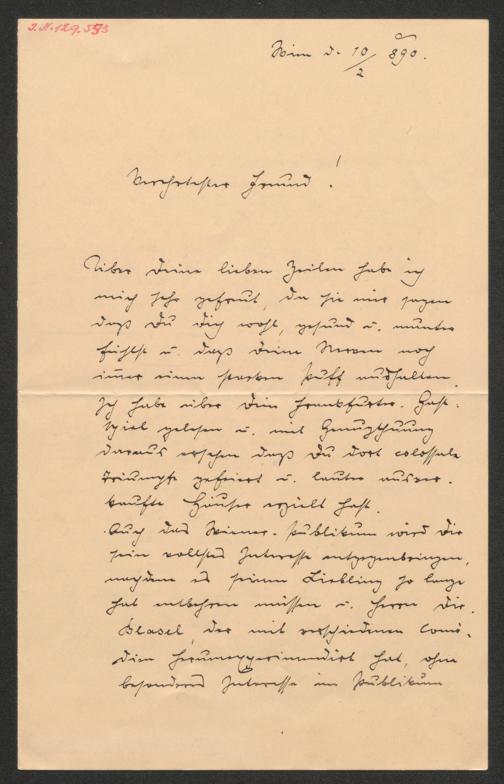 J.N. 129.593
Wien d. 10/2 890.
Verehrtester Freund!
Über Deine lieben Zeilen habe ich
mich sehr gefreut, da sie mir sagen
daß Du Dich wohl, gesund u. munter
fühlst u. daß Deine Nerven noch
immer einen starken Puff aushalten.
Ich habe über Dein Frankfurter. Gast-
spiel gelesen u. mit Genugthuung
daraus ersehen daß Du dort colossale
Triumpfe gefeiert u. lauter ausver-
kaufte Häuser erzielt hast.
Auch das Wiener-Publikum wird Dir
sein vollstes Interesse entgegenbringen,
nachdem es seinen Liebling so lange
hat entbehren müssen u. Herrn Dir.
Blasel, der mit verschiedenen Comö-
dien herumexperimendirt hat, ohne
besonderes Interesse im Publikum